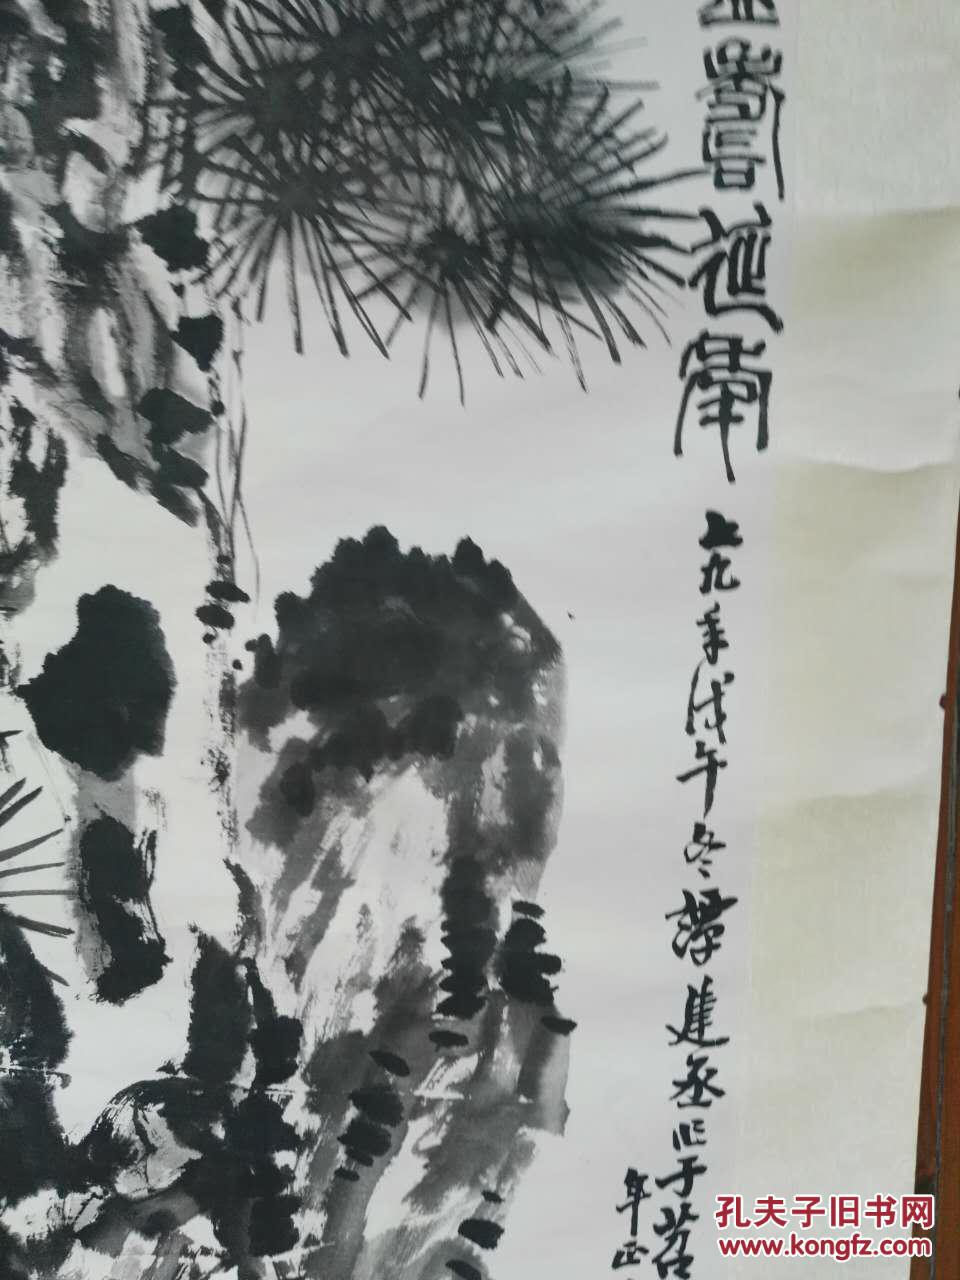 寿延年
上九年戊午冬谭建丞作于苕
年正
孔夫子旧书网
www.kongfz.com